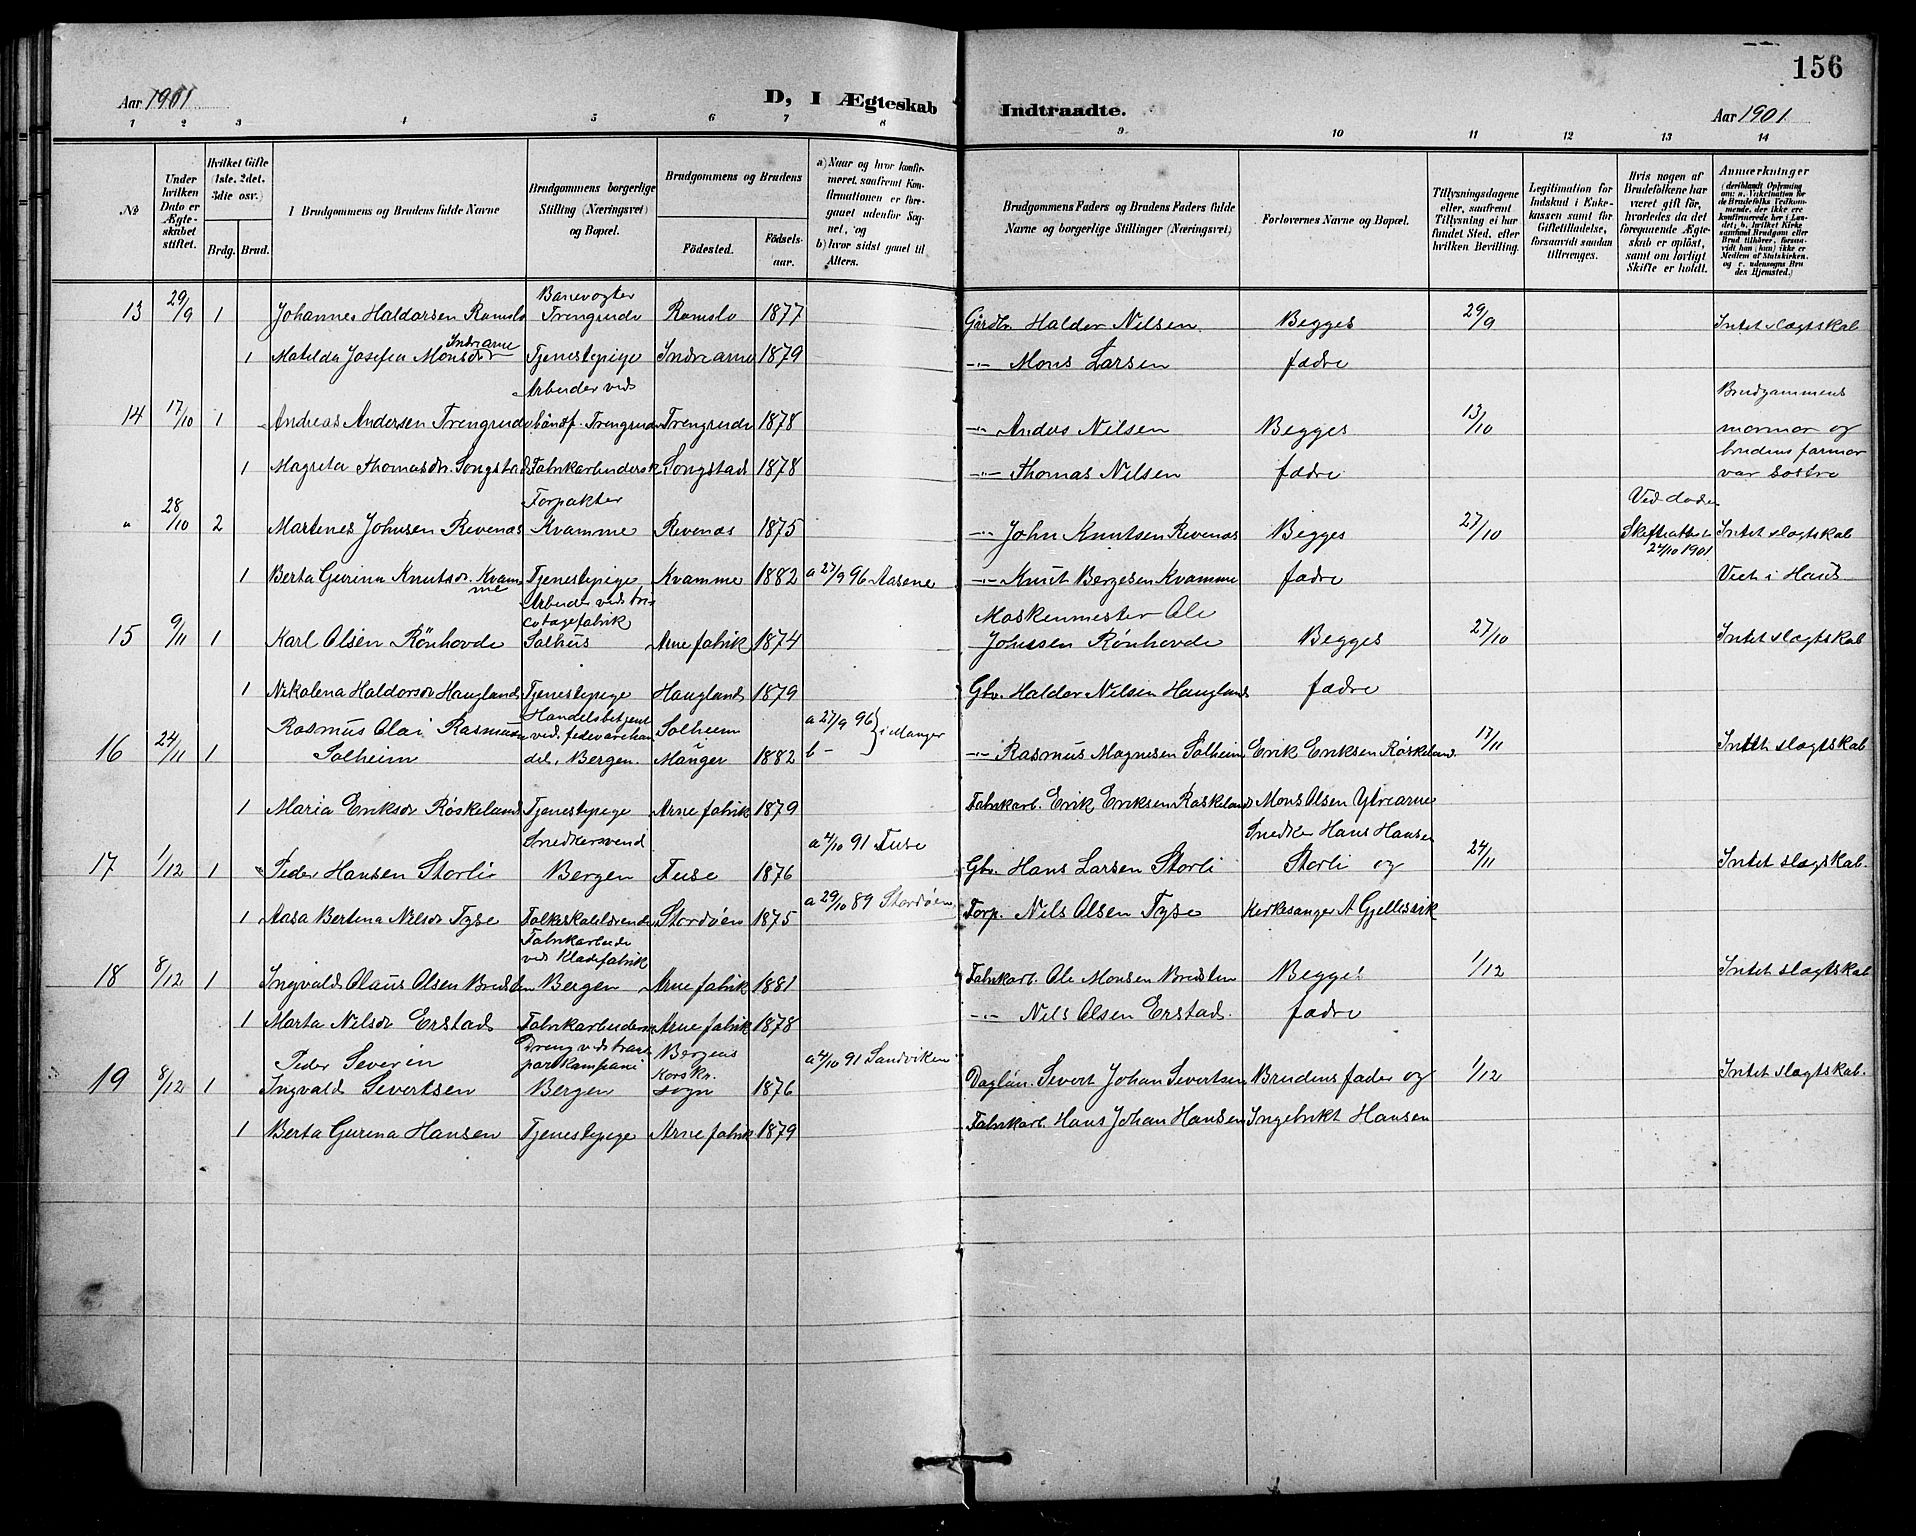 156
Aar 1901
D, I Ægteskab
Indtraadte.
Aar 1901
1 2 3 4 5 6 7 8 9 10 11 12 13 14
№
Under hvilken Dato er Ægteskabet stiftet.
Hvilket Gifte (1ste, 2det, 3die osv.)
Brdg. Brud.
Brudgommens og Brudens fulde Navne
Brudgommens borgerlige Stilling (Næringsvei) og Bopæl.
Brudgommens og Brudens
Fødested. Fødsels-aar.
a) Naar og hvor konfirmeret, saafremt Konfirmationen er foregaaet udenfor Sognet, og
b) hvor sidst gaaet til Alters.
Brudgommens Faders og Brudens Faders fulde Navne og borgerlige Stillinger (Næringsvei)
Forlovernes Navne og Bopæl.
Tillysningsdagene eller, saafremt Tillysning ei har fundet Sted, efter hvilken Bevilling.
Legitimation for Indskud i Enkekassen samt for Giftetilladelse, forsaavidt saadan tiltrænges.
Hvis nogen af Brudefolkene har været gift før, hvorledes da det foregaaende Ægteskab er opløst, samt om lovligt Skifte er holdt.
Anmærkninger
13 29/9 1 Johannes Haldorsen Romslo Banevogter Trengereide Romslo 1877 Gårdbr. Haldor Nilsen Begges 29/9 Intet slægtskab
1 Matilda Josefea Monsdr Indre arne Tjenestepige Indre arne 1879 -"- Mons Larsen fædre
14 17/10 1 Andreas Andersen Trengereide Arbeider ved Trengereide 1878 -"- Anders Nilsen Begges 13/10 Brudgommens mormor og
1 Magreta Thomasdr. Songstad Fabrikarbeidersk Songstad 1878 -"- Thomas Nilsen fædre brudens farmor var søstre
" 28/10 2 Martenes Johnsen Revenæs Forpakter Kvamme Revenæs 1875 -"- John Knutsen Revenæs Begges 27/10 Ved døden 24/10 1901 Intet slægtskab
1 Berta Gurina Knutsdr. Kvamme Tjenestepige Kvamme 1882 a 27/9 96 Aasene -"- Knut Bergesen Kvamme fædre Viet i Haus
15 9/11 1 Karl Olsen Rönhovde Arbeider ved tricotagefabrik Salhus Arne fabrik 1874 Maskenmester Ole Johnsen Rønhovde Begges 27/10 Intet slægtskab
1 Nikolena Haldorsdr Haugland Tjenestepige Haugland 1879 Gbr. Haldor Nilsen Haugland fædre
16 24/11 1 Rasmus Olai Rasmussen Solheim Handelsbetjent ved fedevarehandel, Bergen. Solheim Manger 1882 a 27/9 96 b - } i Manger -"- Rasmus Magnesen Solheim Erik Eriksen Røskeland 17/11 Intet slægtskab
1 Maria Eriksdr Røskeland Tjenestepige Arne fabrik 1879 Fabrikarb. Erik Eriksen Røskeland Mons Olsen Ytrearne
17 1/12 1 Peder Hansen Storli Snedkersvend Bergen Fuse 1876 a 4/10 91 Fuse Gbr. Hans Larsen Storli Snedker Hans Hansen Storli og 24/11 Intet slægtskab.
1 Aasa Bertina Nilsdr Tyse Stordöen 1875 a 29/10 89 Stordöen Forp. Nils Olsen Tyse Kirkesanger A Gjellesvik
18 8/12 1 Ingvald Olaus Olsen Bredsten Fabrikarbeider ved Klædefabrik Bergen Arne fabrik 1881 Fabrikarb. Ole Monsen Bredsten Begges 1/12 Intet slægtskab
1 Marta Nilsdr Erstad Fabrikarbeiderske Arne fabrik 1878 -"- Nils Olsen Erstad. fædre
19 8/12 1 Peder Severin Ingvald Severtsen Dreng ved transportkompani Bergen Bergens Korskr. sogn 1876 a 4/10 91 Sandviken Daglön. Severt Johan Severtsen Brudens fader og 1/12 Intet slægtskab.
1 Berta Gurina Hansen Tjenestepige Arne fabrik 1879 Fabrikarb. Hans Johan Hansen Ingebrikt Hansen